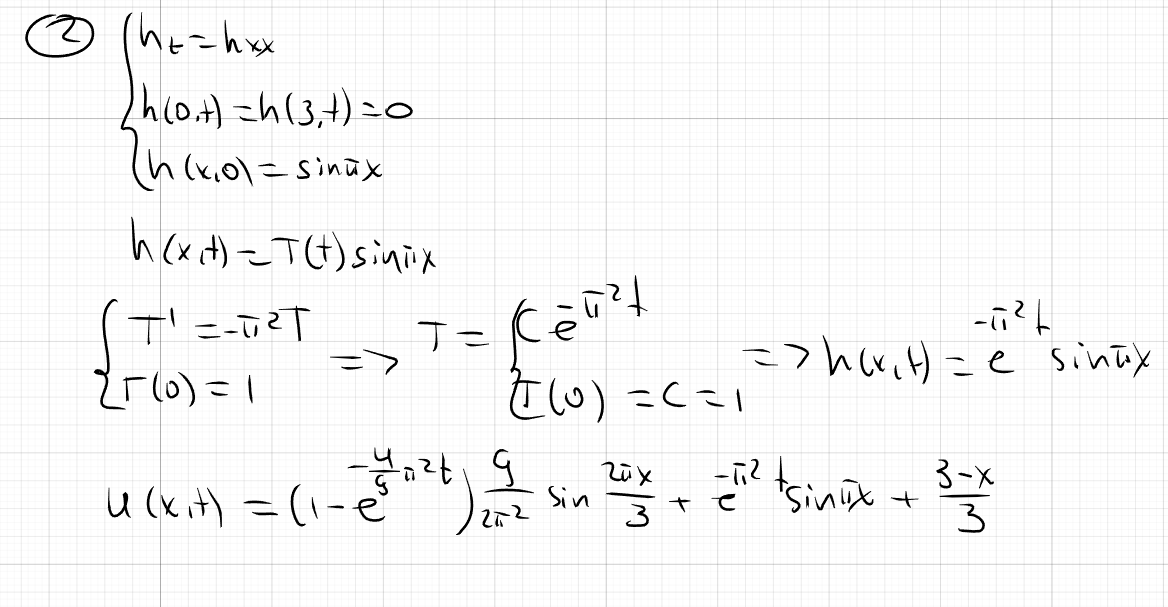 ② { h_t = h_xx
h(0,t) = h(3,t) = 0
h(x,0) = sin πx
h(x,t) = T(t) sin πx
{ T' = -π²T => T = { C e^{-π²t} => h(x,t) = e^{-π²t} sin πx
T(0) = 1 T(0) = C = 1
u(x,t) = (1 - e^{-4/9 π²t}) 9/(2π²) sin 2πx/3 + e^{-π²t} sin πx + (3-x)/3